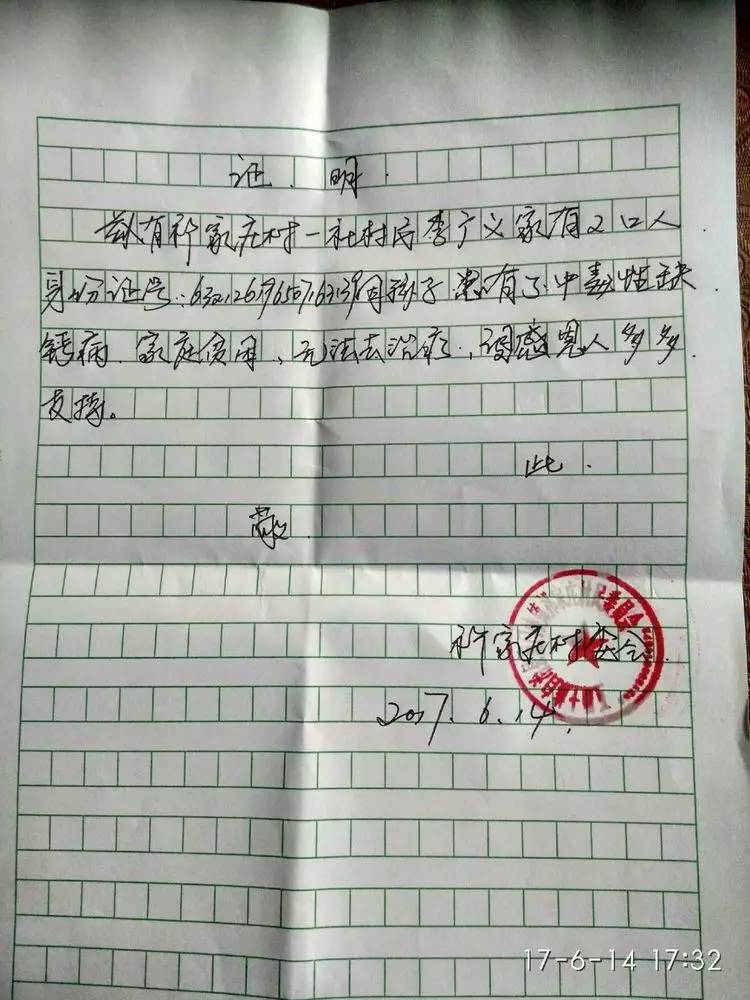 证 明
兹有祁家庄村一社村民李广义家有2口人
身份证号:因孙子患有了中毒性缺
钙病、家庭贫困、无法去治疗,望感恩人多多
支持。
此
敬
祁家庄村委会
2017.6.14
17-6-14 17:32